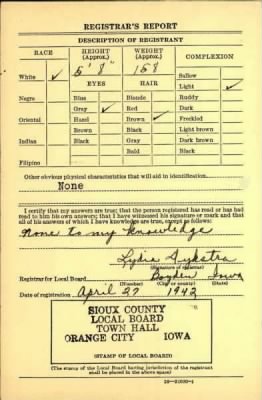 REGISTRAR'S REPORT
DESCRIPTION OF REGISTRANT
RACE HEIGHT (Approx.) WEIGHT (Approx.) COMPLEXION
White ✓ 5' 8" 158 Sallow
EYES HAIR Light ✓
Negro Blue Blonde Ruddy
Gray ✓ Red Dark
Oriental Hazel Brown ✓ Freckled
Brown Black Light brown
Indian Black Gray Dark brown
Bald Black
Filipino
Other obvious physical characteristics that will aid in identification
None
I certify that my answers are true; that the person registered has read or has had
read to him his own answers; that I have witnessed his signature or mark and that
all of his answers of which I have knowledge are true, except as follows:
None to my knowledge
Lydia Dykstra
(Signature of registrar)
Registrar for Local Board Boyden Iowa
(Number) (City or county) (State)
Date of registration April 27 1942
SIOUX COUNTY
LOCAL BOARD
TOWN HALL
ORANGE CITY IOWA
(STAMP OF LOCAL BOARD)
(The stamp of the Local Board having jurisdiction of the registrant
shall be placed in the above space)